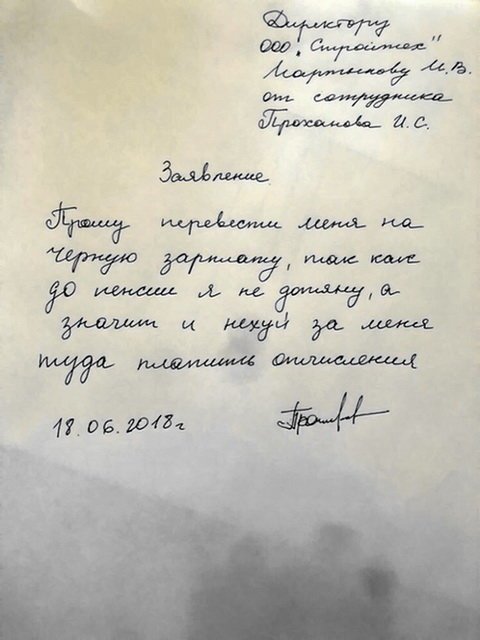 Директору
ООО "Стройтех"
Мартынову И.В.
от сотрудника
Проханова И.С.
Заявление
Прошу перевести меня на
чёрную зарплату, так как
до пенсии я не дотяну, а
значит и нехуй за меня
туда платить отчисления
18.06.2018г